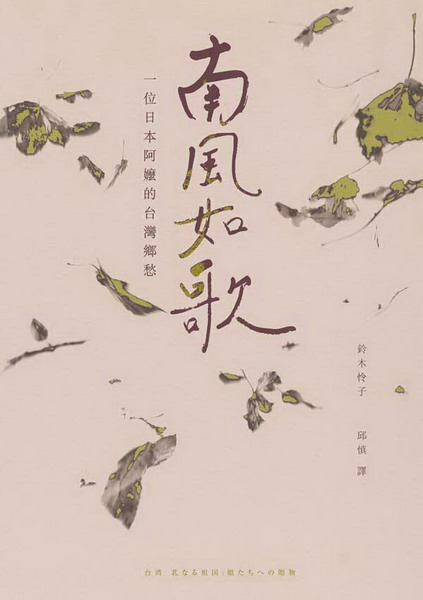 南風如歌
一位日本阿嬤的台灣鄉愁
鈴木怜子
邱慎 譯
台湾 乳なる祖国:娘たちへの贈物